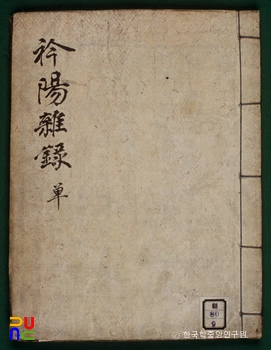 衿陽雜錄
單
© 한국학중앙연구원